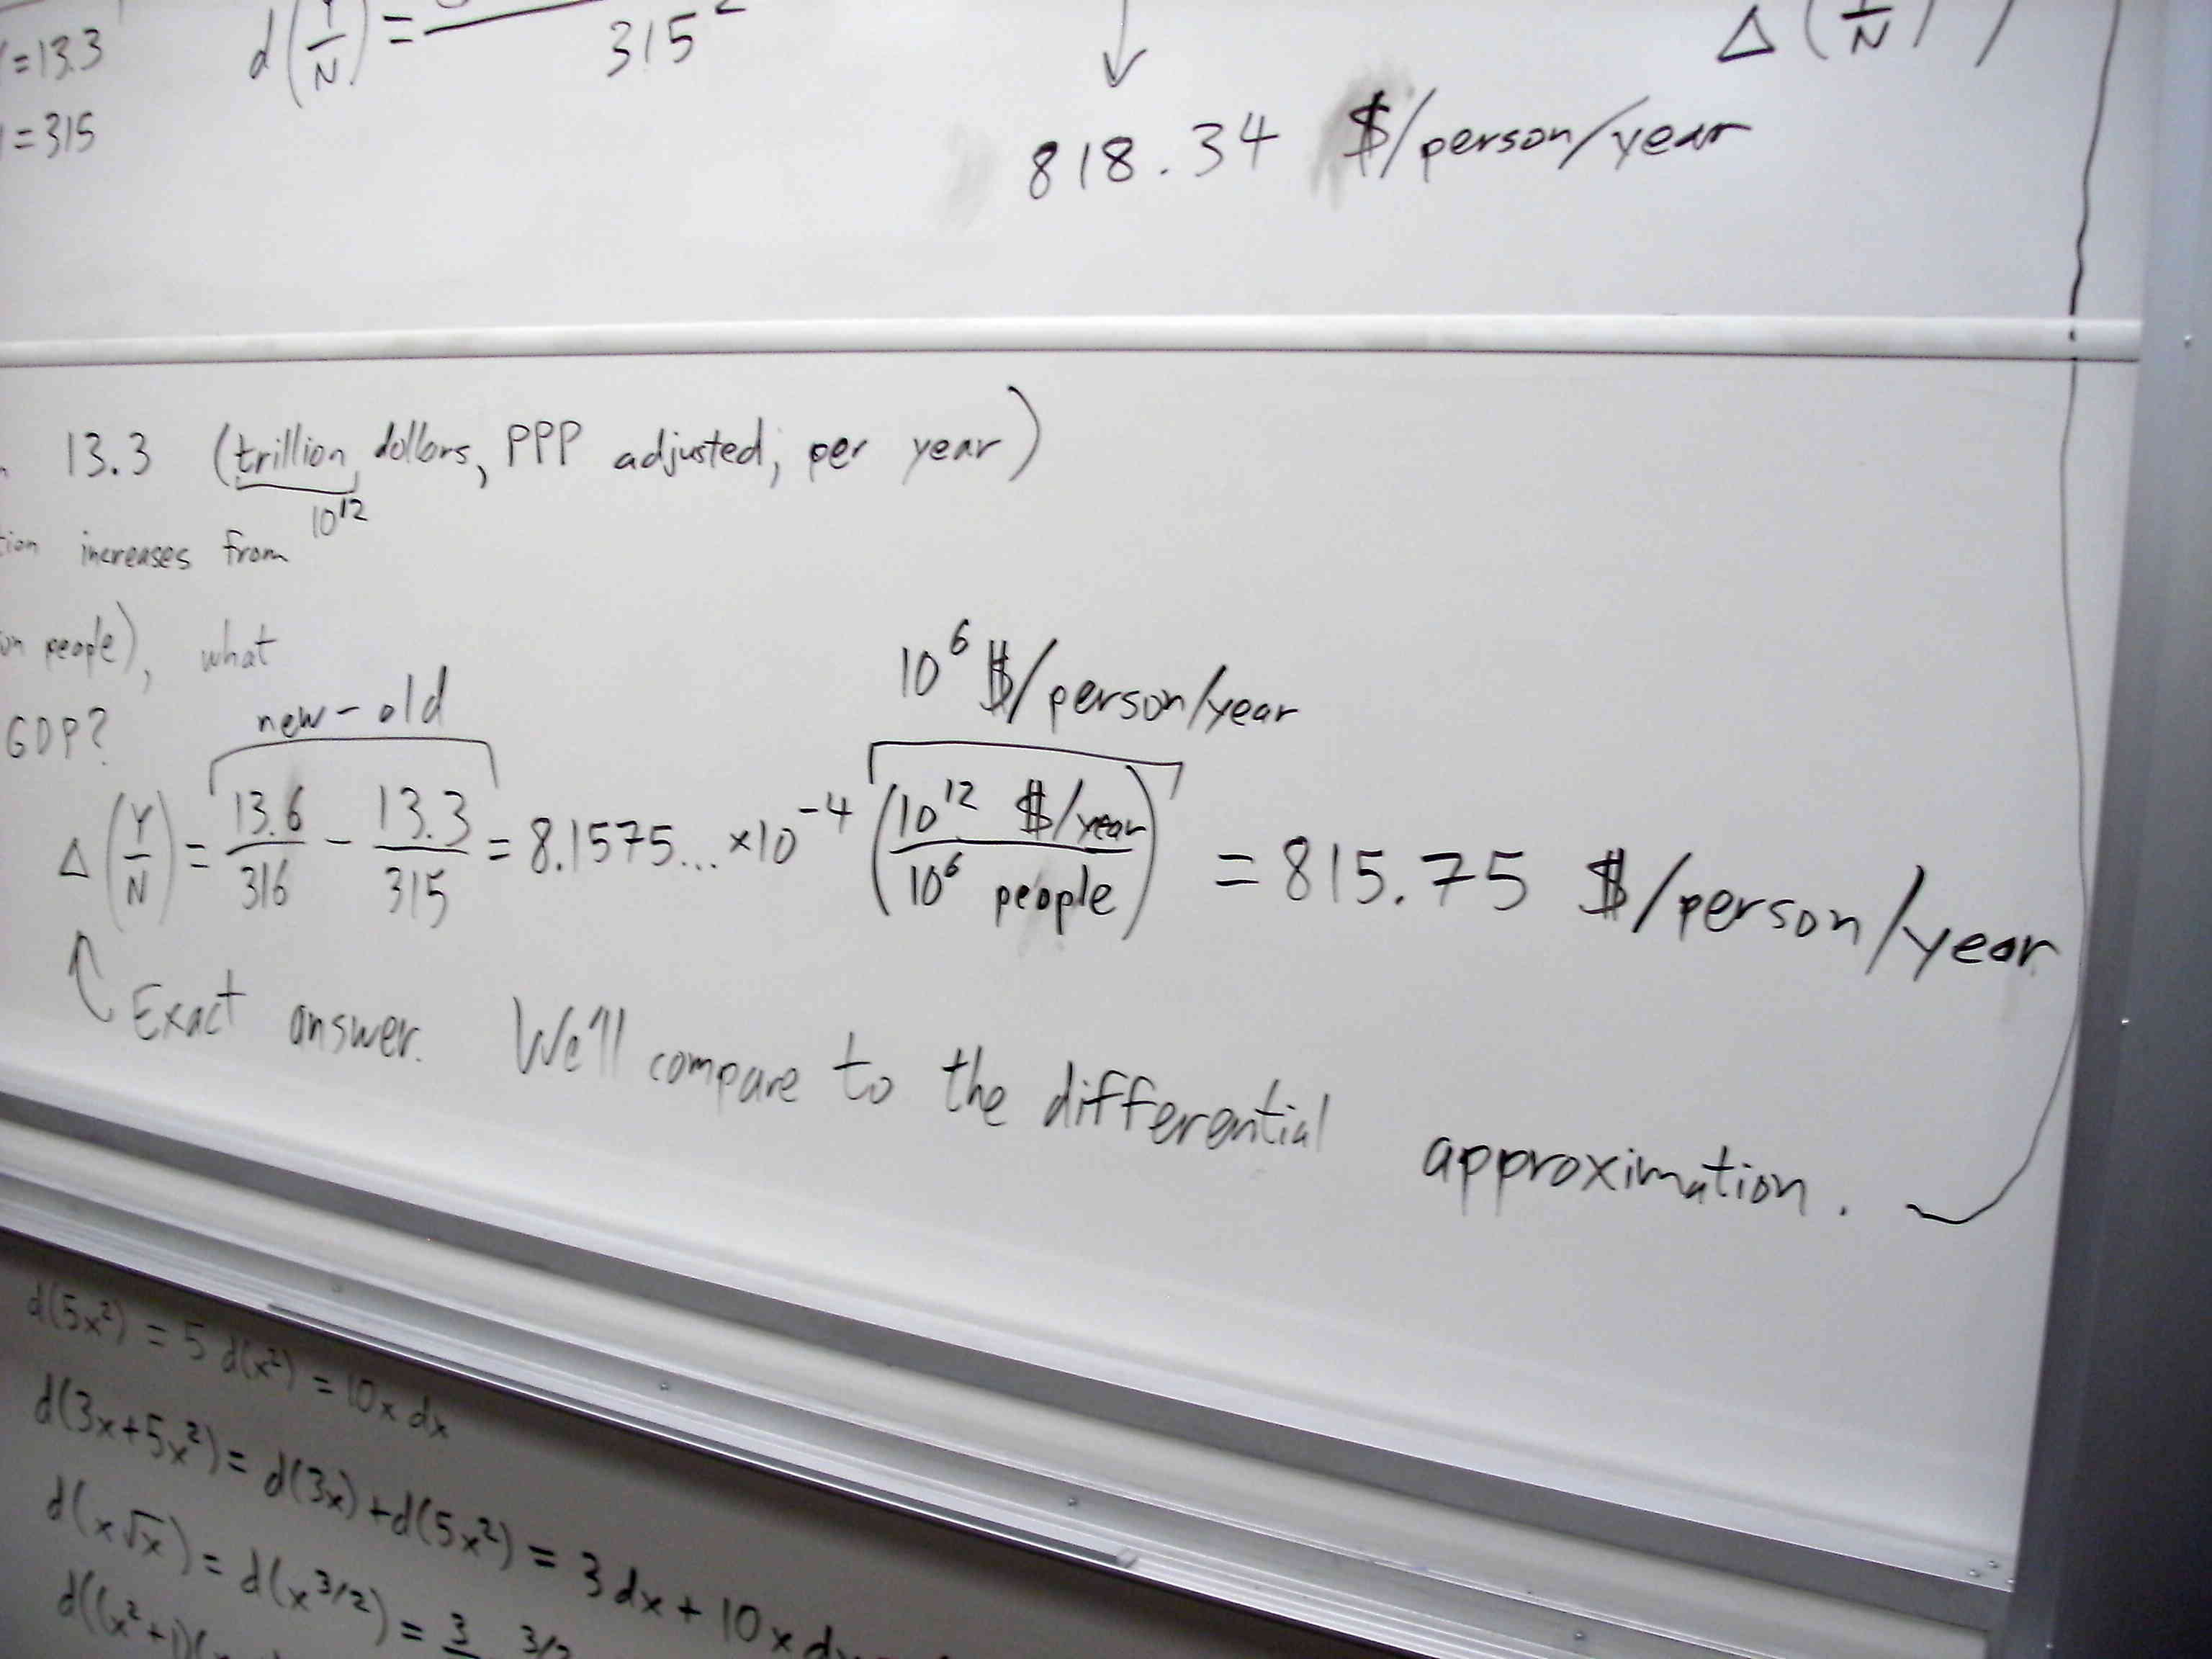 =13.3 d(Y/N) = 315² Δ(Y/N)
=315 818.34 $/person/year
13.3 (trillion dollars, PPP adjusted, per year)
10¹²
increases from
people), what
new-old 10⁶ $/person/year
GDP?
Δ(Y/N) = 13.6/316 - 13.3/315 = 8.1575... ×10⁻⁴ (10¹² $/year / 10⁶ people) = 815.75 $/person/year
Exact answer. We'll compare to the differential approximation.
d(5x²) = 5 d(x²) = 10x dx
d(3x+5x²) = d(3x)+d(5x²) = 3dx + 10x dx
d(x√x) = d(x^3/2) = 3
d((x²+1)(